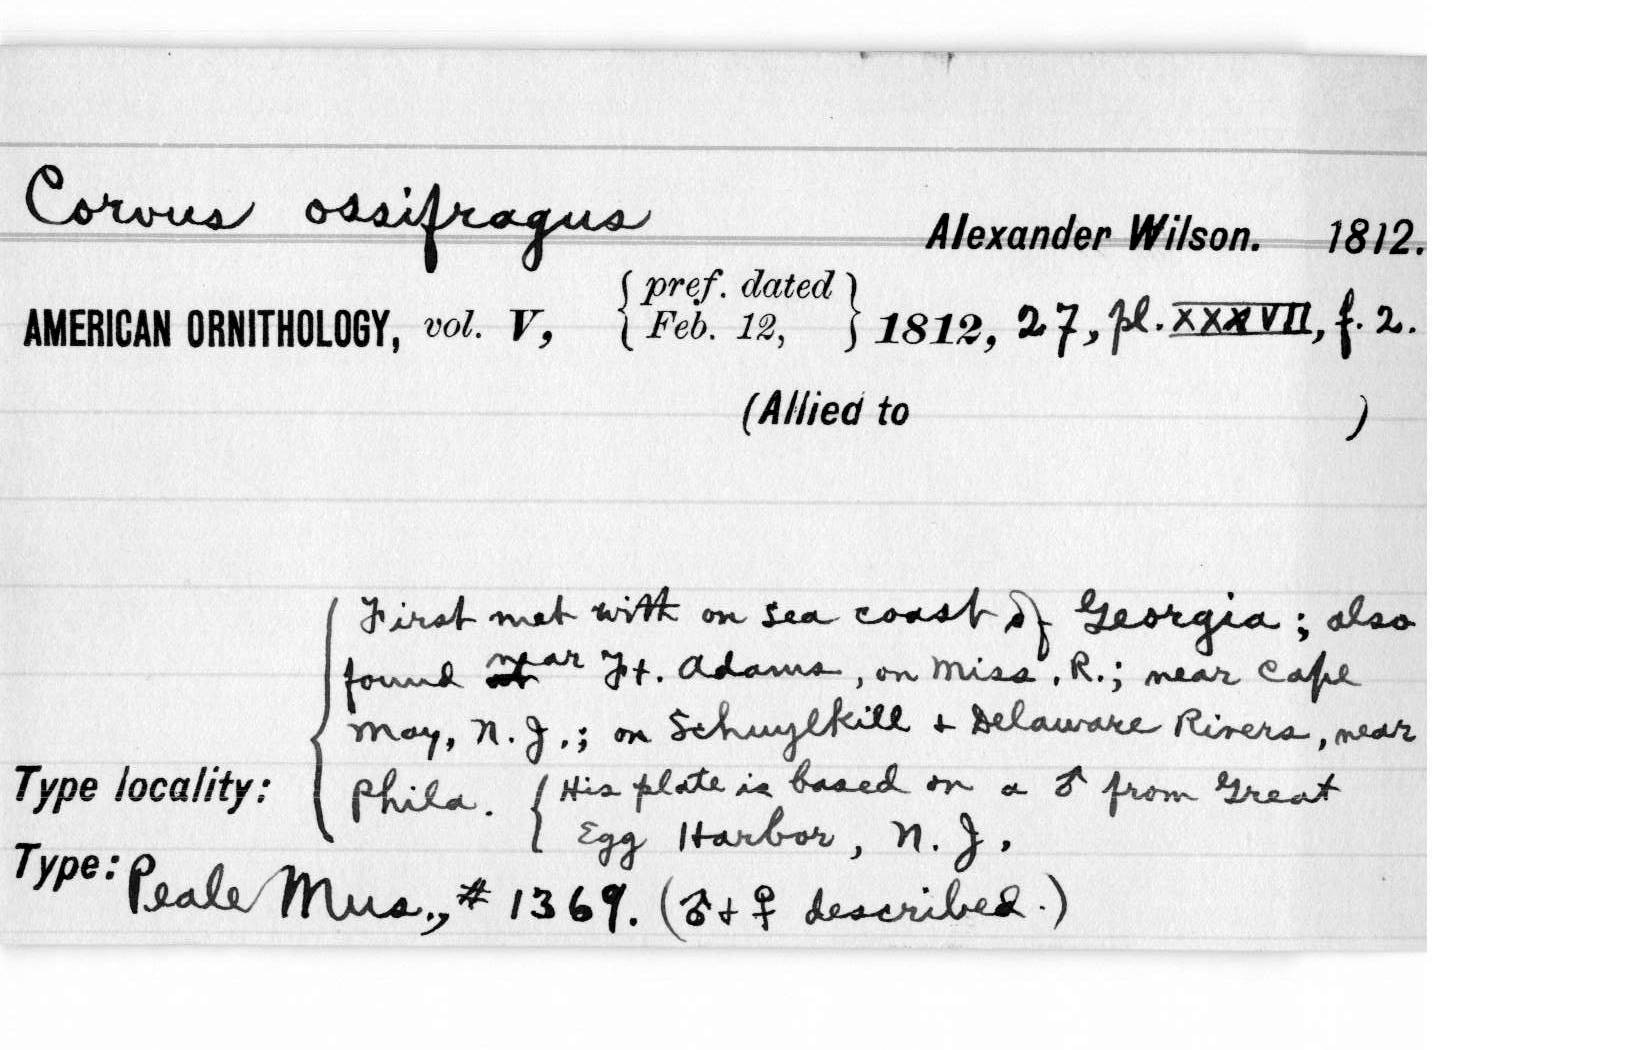 Corvus ossifragus
Alexander Wilson. 1812.
AMERICAN ORNITHOLOGY, vol. V, { pref. dated Feb. 12, } 1812, 27, pl. XXXVII, f. 2.
(Allied to )
First met with on sea coast of Georgia; also
found near Ft. Adams, on Miss. R.; near Cape
May, N. J.; on Schuylkill + Delaware Rivers, near
Type locality: Phila. { His plate is based on a ♂ from Great
Egg Harbor, N. J.
Type: Peale Mus., # 1369. (♂ + ♀ described.)